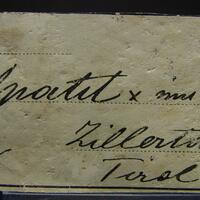 Apatit x
Zillert
Tirol